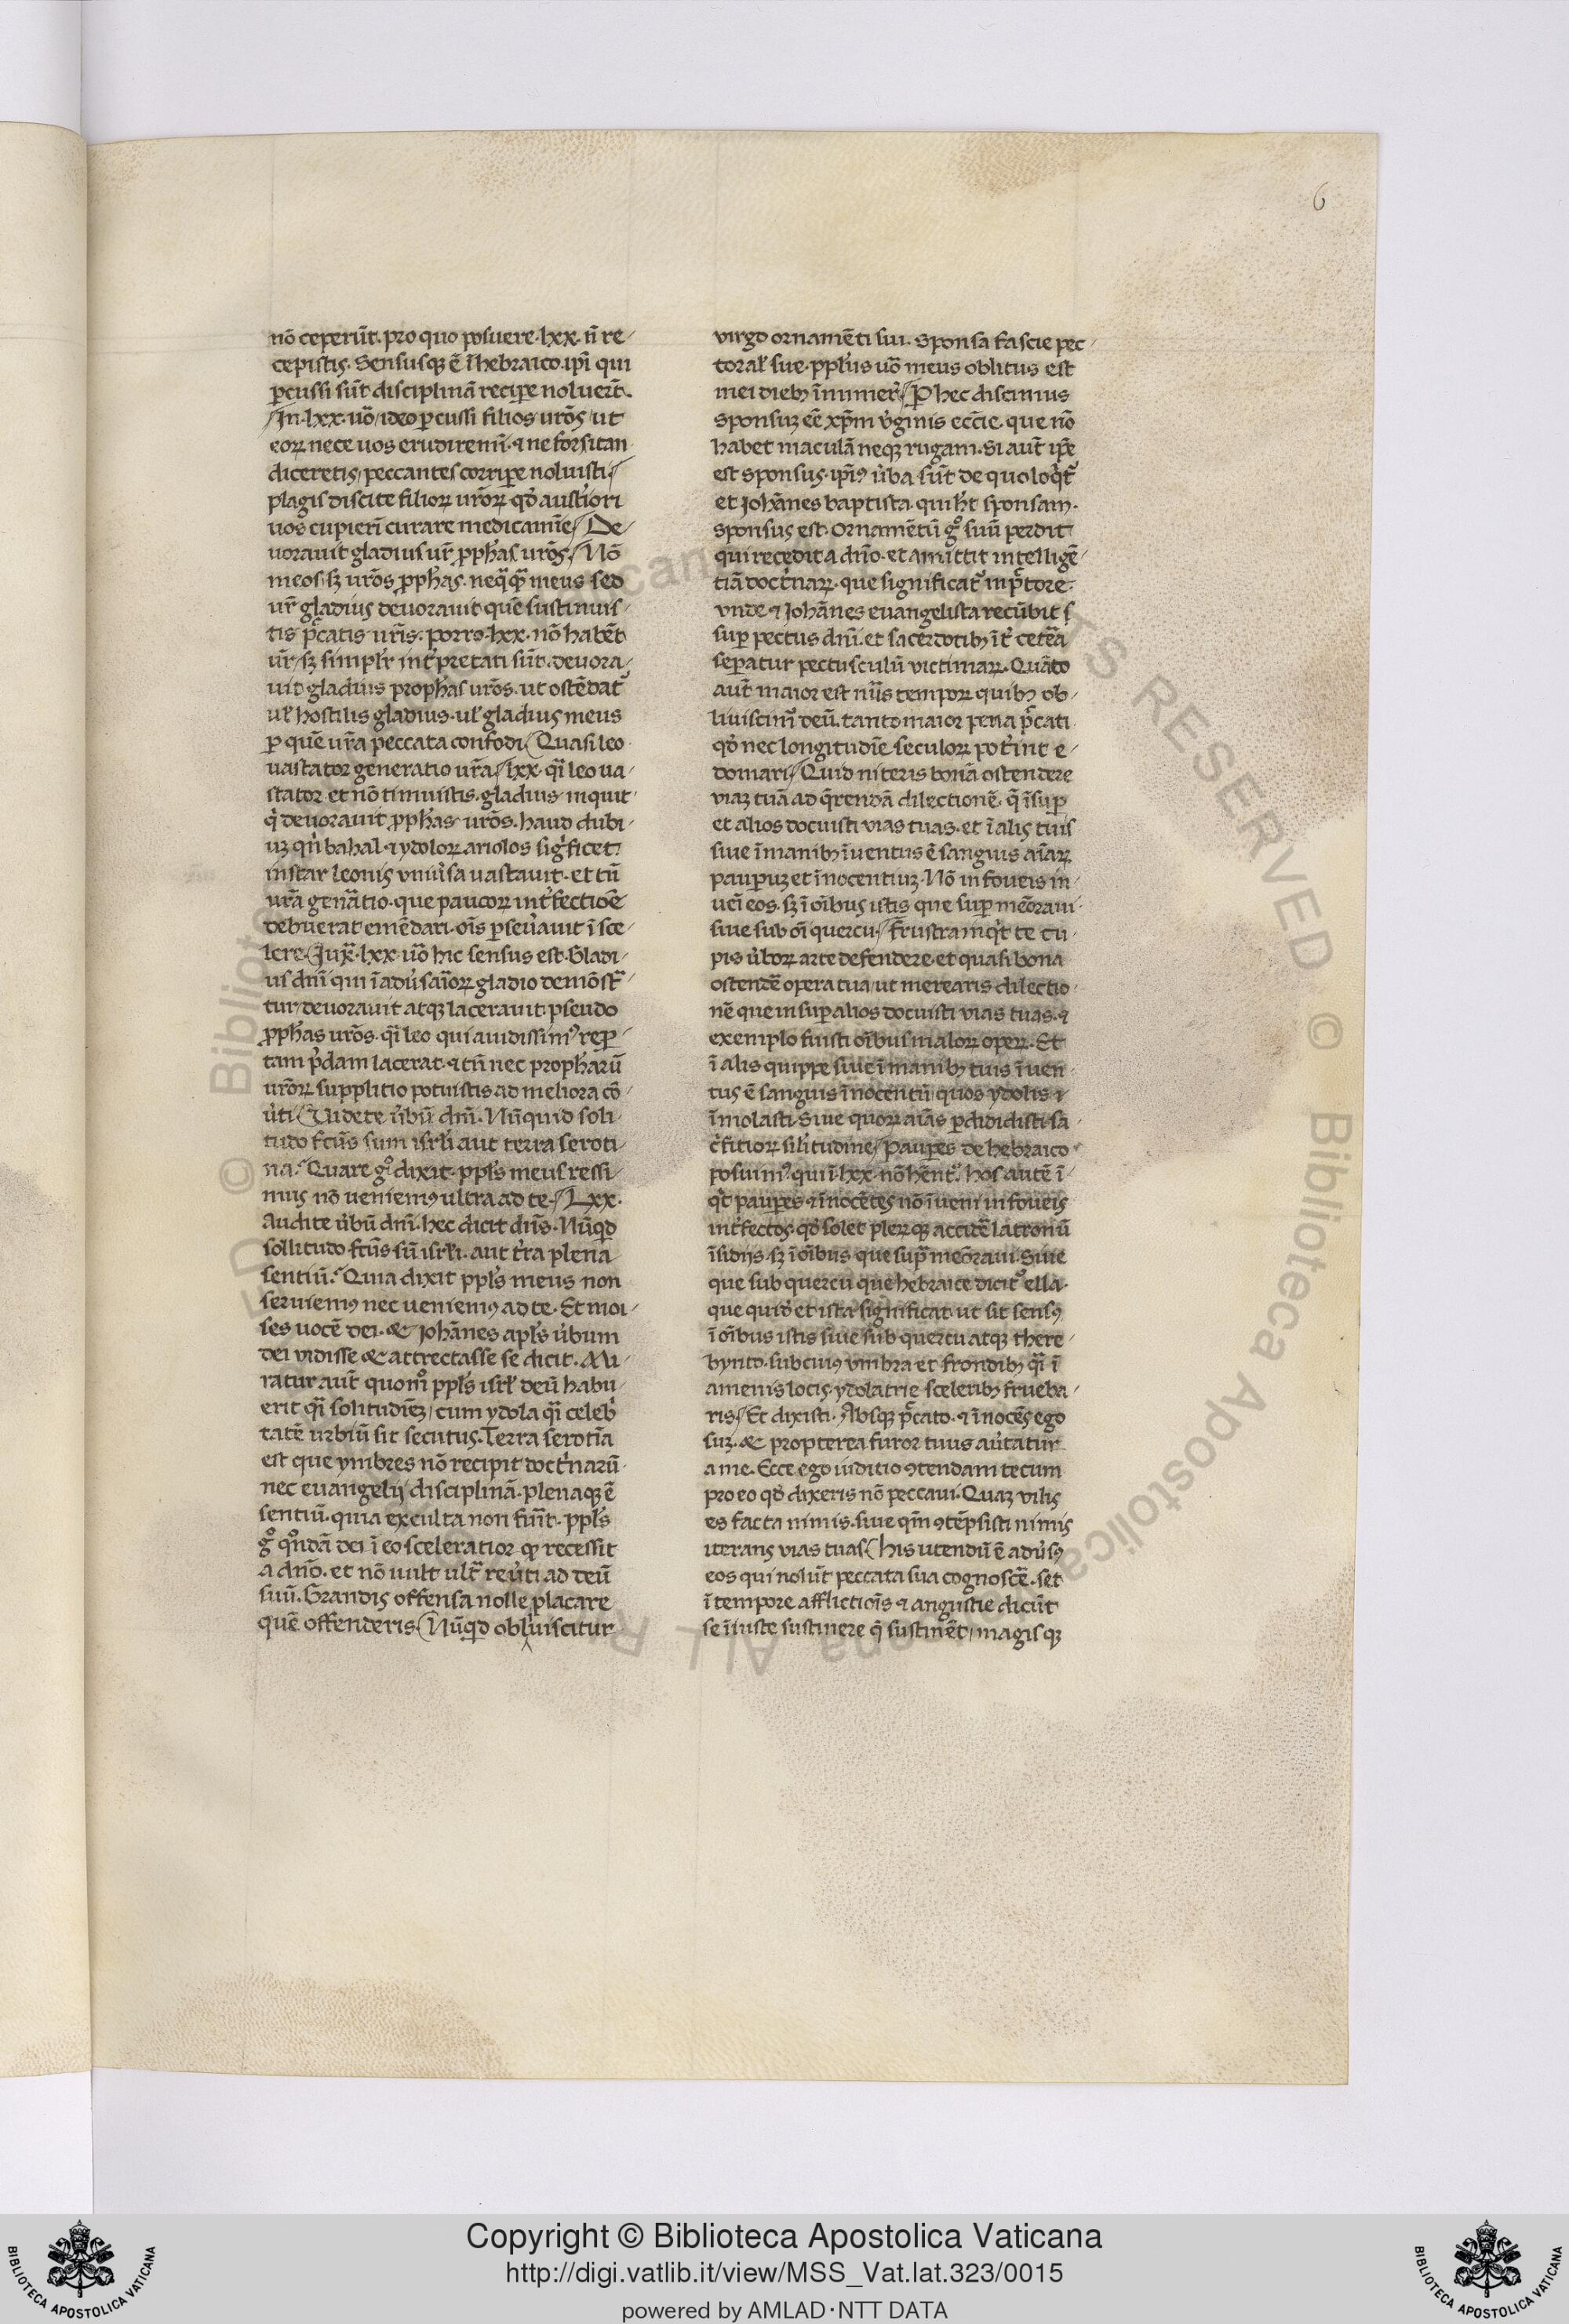 6
nō ceperūt. pro quo posuere. lxx. ñ re-
cepistis. Sensusqꝫ ē ī hebraico. ip̄i qui
ꝑcussi sūt disciplinā reciꝑe noluer̄t.
In. lxx. uō. ideo ꝑcussi filios urōs ut
eoꝝ nece uos erudirem̄. ⁊ ne forsitan
diceretis peccantes corriꝑe noluisti
plagis discite filioꝝ urōꝝ qd̓ aust̓iori
uos cupieri curare medicamīe De-
uorauit gladius ur̄ ꝓph̄as urōs. Nō
meos. sꝫ urōs ꝓph̄as. neqꝫ meus sed
ur̄ gladius deuorauit quē sustinuis-
tis pc̄catis ur̄is. porro. lxx. nō habēt
ur̄. sꝫ simplr̄ int̓pretati sūt. deuora-
uit gladius prophās urōs. ut ostēdat᷑
ul̓ hostilis gladius. ul̓ gladius meus
ꝑ quē ur̄a peccata confodi Quasi leo
uastator generatio ur̄a lxx. qi leo ua-
stator. et nō timuistis. gladius inquit
q̓ deuorauit ꝓph̄as urōs. haud dubi-
uꝫ qn̓ bahal. ⁊ ydoloꝝ ariolos sig̓ficet.
instar leonis vniu̓sa uastauit. et tn̄
ur̄a gen̄atio. que paucoꝝ int̓fectiōe
debuerat emēdari. oīs ꝑseu̓auit ī sce-
lere. Juxͣ. lxx. uō hic sensus est. Gladi-
us dn̄i qui ī adu̓saīoꝝ gladio demōstͣ-
tur deuorauit atqꝫ lacerauit pseudo
ꝓph̄as urōs. qi leo qui auidissim᷒ reꝑ-
tam p̓dam lacerat. ⁊ tn̄ nec propharū
urōꝝ supplitio potuistis ad meliora cō-
u̓ti Uidete u̓bū dn̄i. Nūquid soli-
tudo fc̄us sum isrl̓i aut terra seroti-
na. Quare gͦ dixit. ppl̓s meus ressi-
mus nō ueniem᷒ ultra ad te. Lxx.
Audite u̓bū dn̄i. hec dicit dn̄s. Nūqd̓
sollitudo fc̄us sū isrl̓i. aut t̓ra plena
sentiū. Quia dixit ppl̓s meus non
seruiem᷒ nec ueniem᷒ ad te. Et moi-
ses uocē dei. & Johānes apl̓s u̓bum
dei vidisse & attrectasse se dicit. Mi-
ratur aut̄ quomͦ ppl̓s isrl̓ deū habu-
erit qi solitudinēꝫ cum ydola qi celeb̓
tatē urbiū sit secutus. Terra serotīa
est que ymbres nō recipit doct̓narū
nec euangelij disciplinā. plenaqꝫ ē
sentiū. quia exculta non fuīt. ppl̓s
gͦ qͦndā dei ī eo sceleratior qꝫ recessit
a dn̄o. et nō uult ultͣ reu̓ti ad deū
suū. Grandis offensa nolle placare
quē offenderis. Nūqd̓ obliuiscitur
virgo ornamēti sui. Sponsa fascie pec-
toral̓ sue. ppl̓us uō meus oblitus est
mei diebꝫ īnumer̓ P hec discimus
sponsuꝫ eē xp̄m u̓ginis eccīe. que nō
habet maculā neqꝫ rugam. Si aut̄ ip̄e
est sponsus. ip̄i᷒ u̓ba sūt de quo loqt᷑
et Johānes baptista. qui h̄t sponsam.
sponsus est. Ornamētū gͦ suū perdit
qui recedit a dn̄o. et amittit intelligē-
tiā doct̓naꝝ. que significat᷑ in pc̄tore.
vnde ⁊ Johānes euangelista recūbit s
suꝑ pectus dn̄i. et sacerdotibꝫ īt̓ cetēa
seꝑatur pectusculū victimaꝝ. Quāto
aut̄ maior est nūs tempoꝝ quibꝫ ob-
liuiscim᷒ deū. tanto maior pena pc̄cati
qd̓ nec longitudīe seculoꝝ pot̓int e-
domari Quid niteris bonā ostendere
viaꝫ tuā ad q̄rendā dilectionē. q̄ īsuꝑ
et alios docuisti vias tuas. et ī alis tuis
siue ī manibꝫ īuentus ē sanguis aīaꝝ
pauꝑuꝫ et īnocentiuꝫ. Nō in foueis in-
ueī eos. sꝫ ī oībus istis que suꝑ meōraui.
siue sub oī quercu. Frustra inqt̓ te cu-
pis u̓boꝝ arte defendere. et quasi bona
ostendē opera tua ut merearis dilectio-
nē que insuꝑ alios docuisti vias tuas. ⁊
exemplo fuisti oībus maloꝝ opeꝝ. Et
ī alis quippe siue ī manibꝫ tuis īuen-
tus ē sanguis īnocentū quos ydolis ⁊
īmolasti. Siue quoꝝ aīas ꝑdididisti sa-
c̓fitioꝝ sil̓itudine Pauꝑes de hebraico
posuim᷒ qui ī. lxx. nō hēnt᷑. Hos autē ī-
qt̓ pauꝑes ⁊ īnocētes nō īueni in foueis
int̓fectos. qd̓ solet pleꝝqꝫ accidē latronū
īsidijs. sꝫ ī oībus que supͣ meōraui. Siue
que sub quercu que hebraice dicit᷑ ella.
que quid̓ et ista significat. ut sit sens᷒
ī oībus istis siue sub quercu atqꝫ there-
bynto. sub cui᷒ vmbra et frondibꝫ qi ī
amenis locis ydolatrie sceleribꝫ frueba-
ris. Et dixisti. Absqꝫ pc̄cato. ⁊ īnocēs ego
suꝫ. & propterea furor tuus au̓tatur
a me. Ecce ego iuditio ꝯtendam tecum
pro eo qd̓ dixeris nō peccaui. Quaꝫ vilis
es facta nimis. siue qm̄ ꝯtēpsisti nimis
iterans vias tuas His utendū ē adu̓s᷒
eos qui nolūt peccata sua cognoscē. set
ī tempore afflictiōis ⁊ angustie dicūt
se īiuste sustinere q̓ sustinēt. magisqꝫ
Copyright © Biblioteca Apostolica Vaticana
http://digi.vatlib.it/view/MSS_Vat.lat.323/0015
powered by AMLAD·NTT DATA